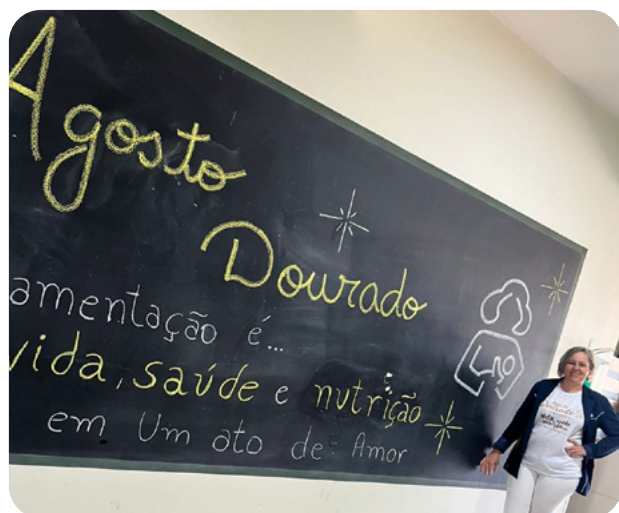 Agosto
Dourado
amentação é...
vida, saúde e nutrição
em um ato de Amor